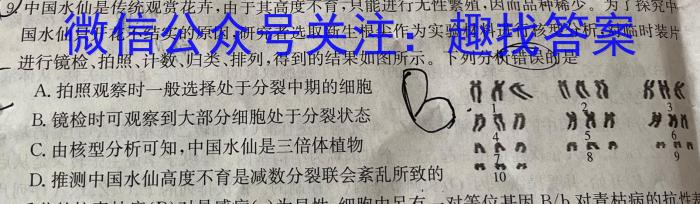 9. 中国水仙是传统观赏花卉,由于其高度不育,只能进行无性繁殖,因而品种稀少。为了探究中
国水仙只开花不结实的原因,研究者选取新生根尖作为实验材料进行核型分析,对临时装片
微信公众号关注:趣找答案
进行镜检、拍照、计数、归类、排列,得到的结果如图所示。下列分析错误的是
A. 拍照观察时一般选择处于分裂中期的细胞
B. 镜检时可观察到大部分细胞处于分裂状态
C. 由核型分析可知,中国水仙是三倍体植物
D. 推测中国水仙高度不育是减数分裂联会紊乱所致的
B
1 2 3
4 5 6
7 8 9
10